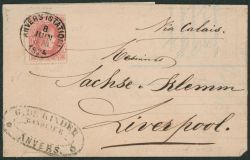 ANVERS (STATION)
8
JUIN
1874
Via Calais.
Messieurs
Sachse & Klemm
Liverpool.
G. DE KINDER
BANQUIER
ANVERS